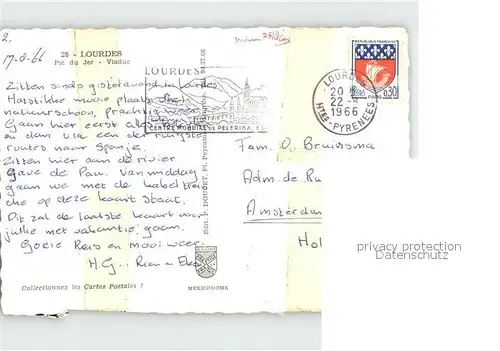 2.
26 - LOURDES
Pic du Jer - Viaduc
17-8-'66
Zitten sinds gisteravond in Lourdes
Hartstikke mooie plaats
natuurschoon, prachtig
Gaan hier eerst
en dan via een
routes naar Spanje.
Zitten hier aan de rivier
Gave de Pau. Vanmiddag
gaan we met de kabeltrein
die op deze kaart staat.
Dit zal de laatste kaart voor
jullie met vakantie gaan.
Goeie Reis en mooi weer.
H.G.. Rien
Collectionnez les Cartes Postales !
LOURDES
CENTRE MONDIAL DE PELERINA
Edit. P. DOUCET, Pl. Peyramale
MEXICHROME
REPUBLIQUE FRANÇAISE
0,30
PARIS
LOURDES
20 H
22 - 8
1966
Htes PYRENEES
Fam. O. Bruissma
Adm. de Ru
Amsterdam
Hol
privacy protection
Datenschutz